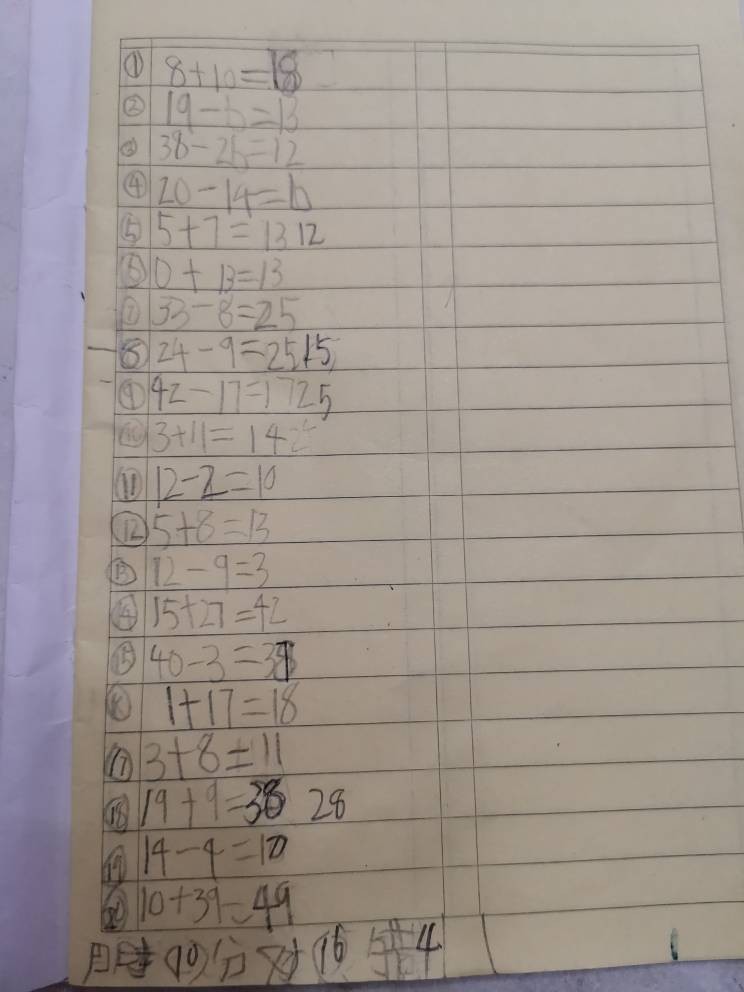 ① 8+10=18
② 19-6=13
③ 38-26=12
④ 20-14=6
⑤ 5+7=13 12
⑥ 0+13=13
⑦ 33-8=25
⑧ 24-9=25 15
⑨ 42-17=17 25
⑩ 3+11=14
⑪ 12-2=10
⑫ 5+8=13
⑬ 12-9=3
⑭ 15+27=42
⑮ 40-3=37
⑯ 1+17=18
⑰ 3+8=11
⑱ 19+9=38 28
⑲ 14-4=10
⑳ 10+39=49
用时(10)分 对(16 错4